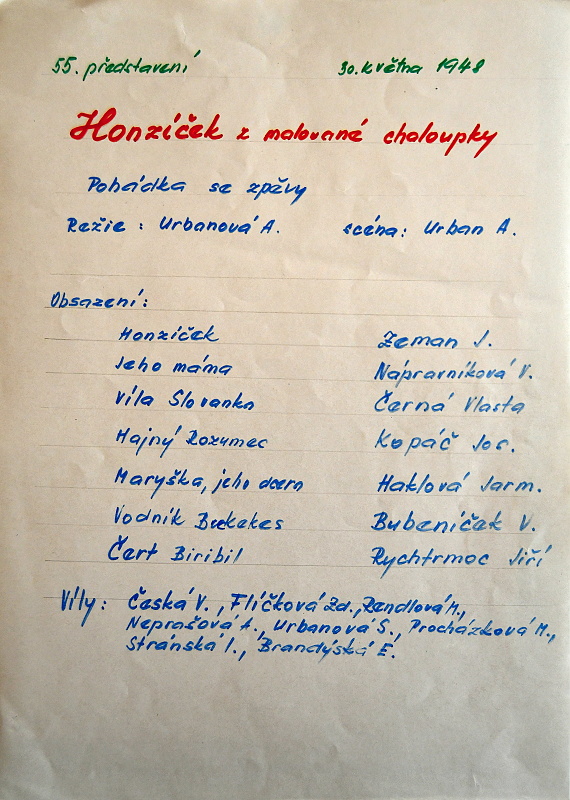 55. představení 30. května 1948
Honzíček z malované chaloupky
Pohádka se zpěvy
Režie : Urbanová A. scéna: Urban A.
Obsazení:
Honzíček Zeman J.
Jeho máma Nápravníková V.
Víla Slovanka Černá Vlasta
Hajný Rozumec Kopáč Jos.
Maryška, jeho dcera Haklová Jarm.
Vodník Brekekes Bubeníček V.
Čert Biribil Rychtrmoc Jiří
Víly: Česká V., Flíčková Zd., Rendlová M.,
Neprašová A., Urbanová S., Procházková M.,
Stránská I., Brandýská E.